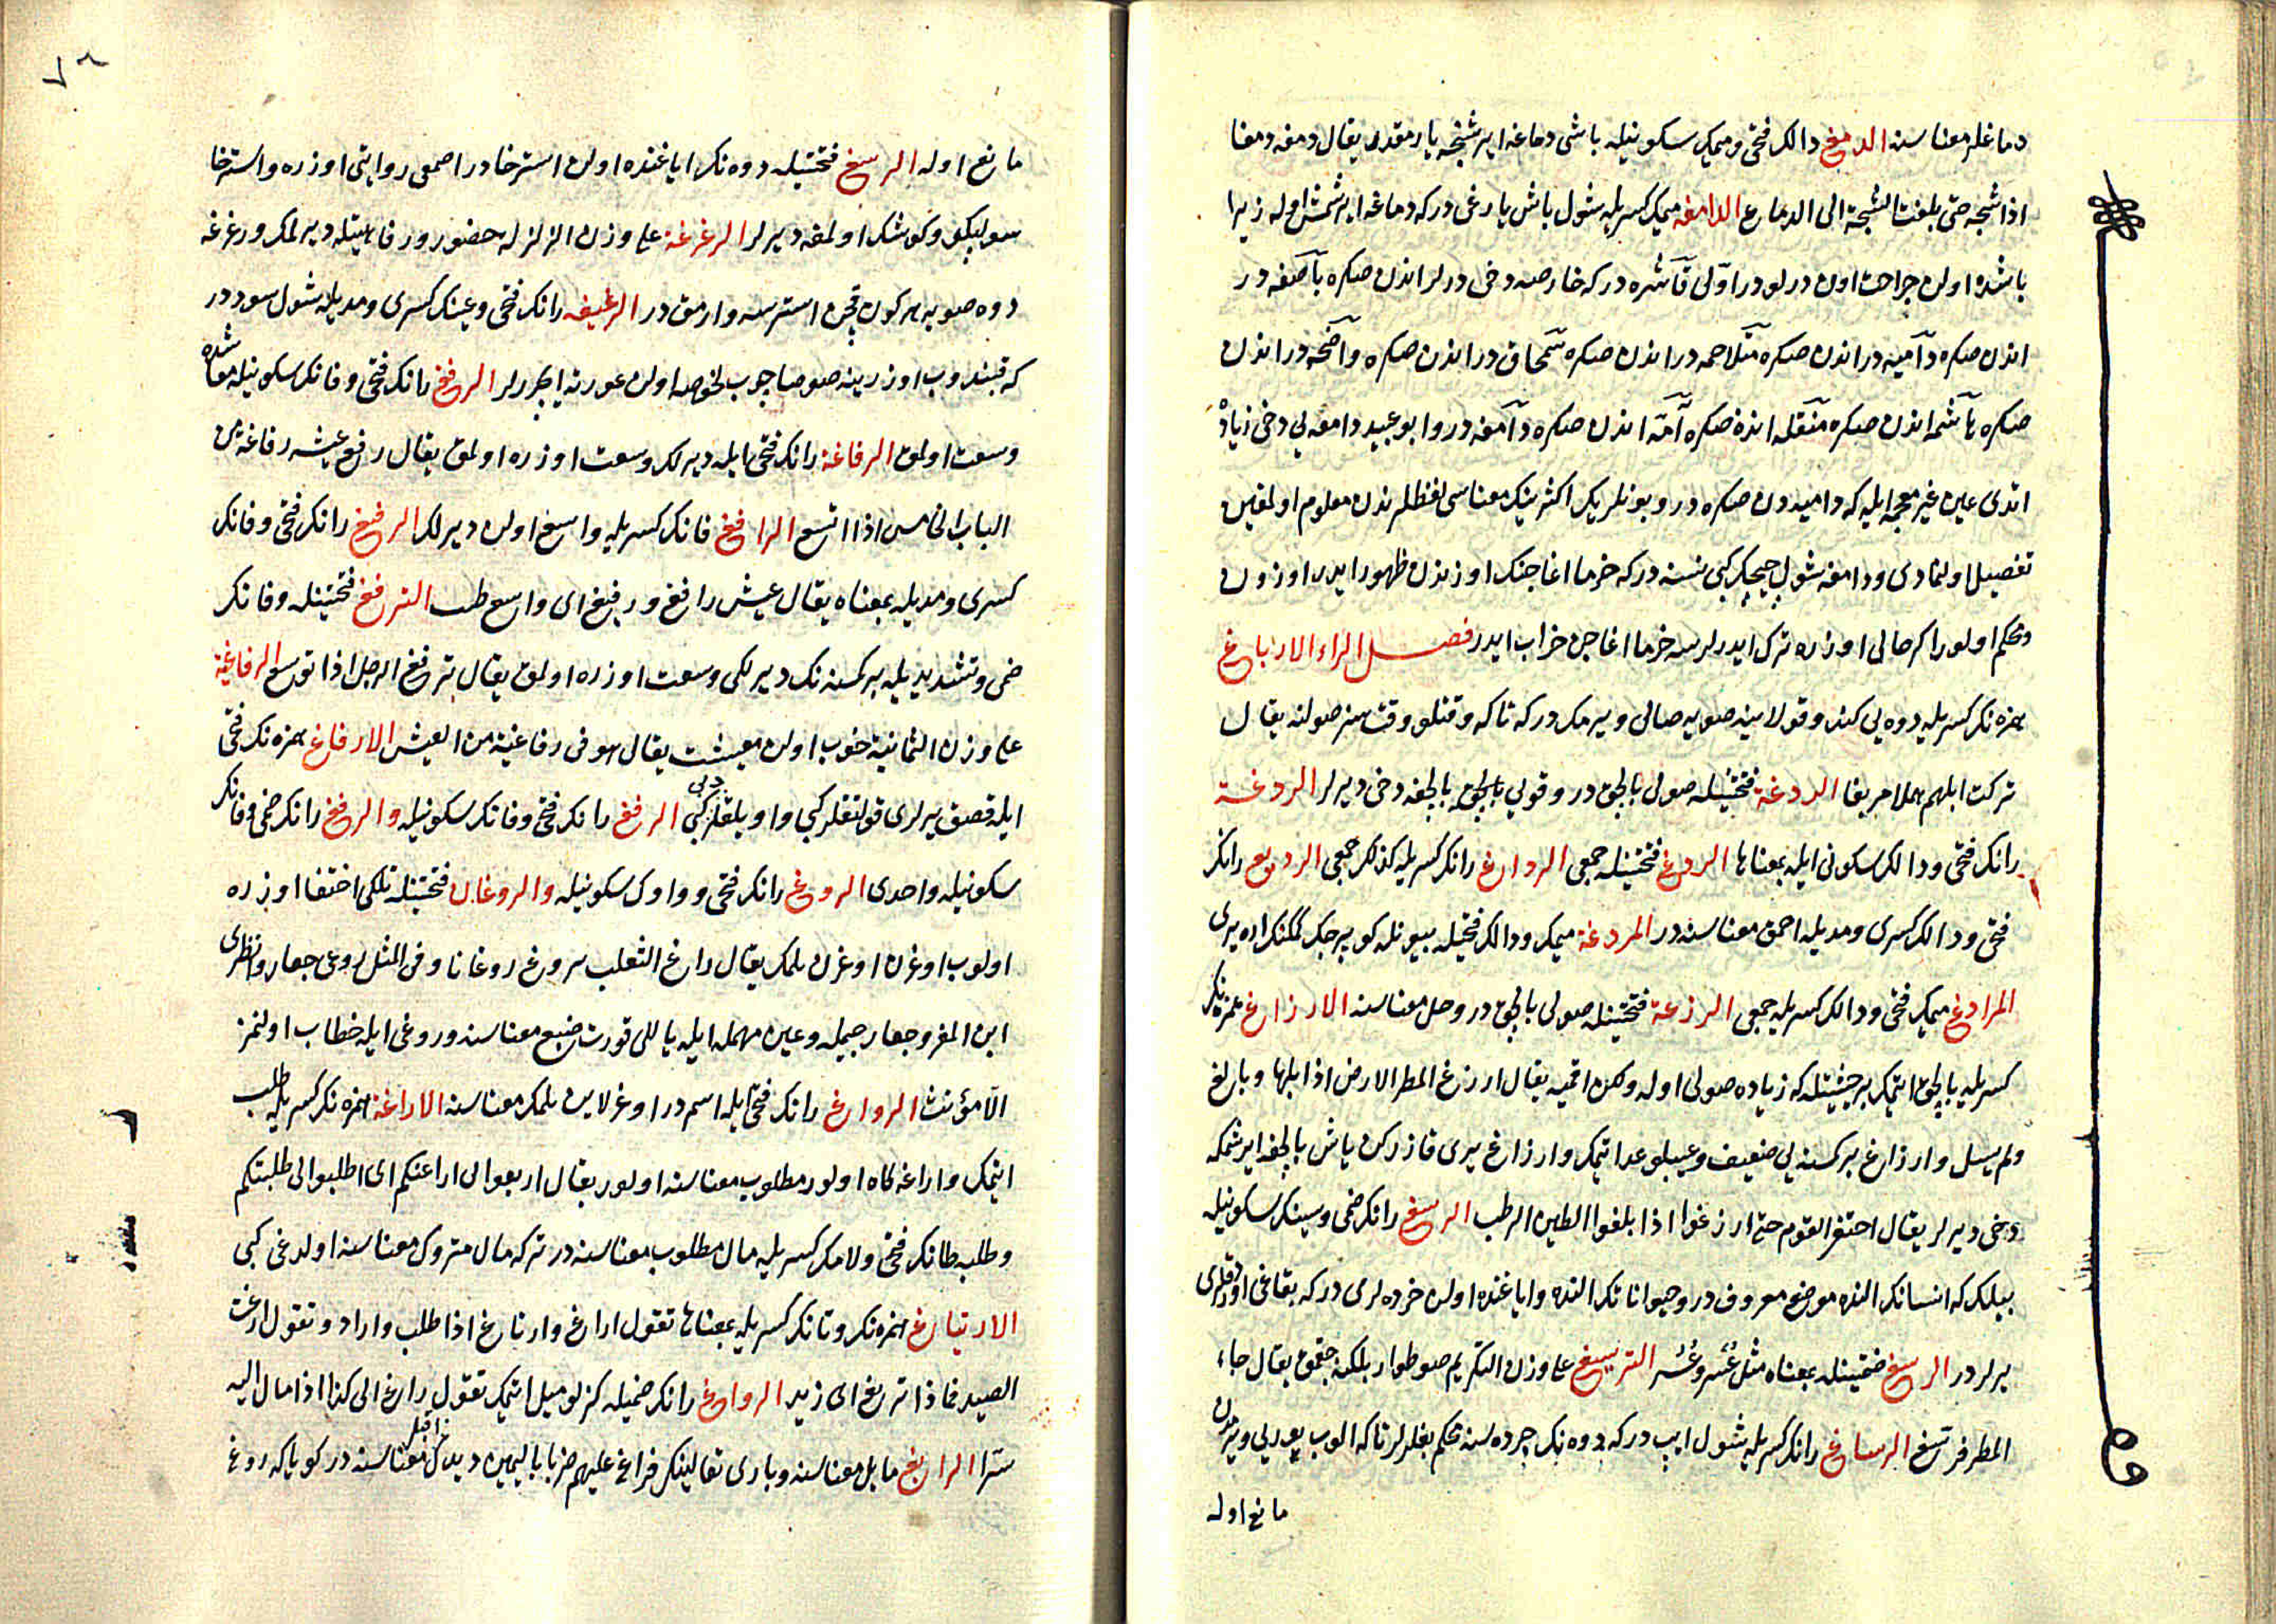 دماغلر معناسنه الدمغ دالك فتحى وميمك سكونيله باشى دماغه ايرشنجه يارمقدر يقال دمغه دمغا
اذا شجه حتى بلغت الشجة الى الدماغ الدامغه ميمك كسريله شول باش يارغى دركه دماغه ايرشمش اوله زيرا
باشده اولن جراحت اون درلودر اولى قاشره دركه خارصه دخى درلر اندن صكره باضعه در
اندن صكره داميه در اندن صكره متلاحمه در اندن صكره سمحاق در اندن صكره واضحه در اندن
صكره هاشمه اندن صكره منقله اندن صكره آمه اندن صكره دامغه در وابو عبيد دامعه يى دخى زياده
اتدى عين غير معجمه ايله كه داميه دن صكره در وبونلريك اكثرينك معناسى لفظلرندن معلوم اولمغين
تفصيل اولنمادى ودامغه شول چيچك كبى نسنه دركه خرما اغاجنك اوزندن ظهور ايدر اوزون
ومحكم اولور اكر حالى اوزره ترك ايدرلرسه خرما اغاجن خراب ايدر فصل الراء الارباغ
همزه نك كسريله دوه يى كندو قولاينه صويه صالى ويرمك دركه تا كه وقتلو وقتسز صولنه يقال
تركت ابلهم هملا مربغا الردغة فتحتينله صولى بالچق در وقويى بالچق بالچغه دخى ديرلر الردغة
رانك فتحى ودالك سكونى ايله بمعناها الردغ فتحتينله جمعى الرداغ رانك كسريله كذلك جمعى الرديغ رانك
فتحى ودالك كسرى ومديله احمق معناسنه در المردغة ميمك ودالك فتحيله بيونله كوپرجك كمكنك اره يرى
المرادغ ميمك فتحى ودالك كسريله جمعى الرزغة فتحتينله صولى بالچق در وحل معناسنه الارزاغ همزه نك
كسريله بالچق ايتمك بر حيثيتله كه زياده صولى اوله ولكن اقميه يقال ارزغ المطر الارض اذا بلها وبالغ
ولم يسل وارزاغ بر كمسنه يى ضعيف وعيبلو عد اتمك وارزاغ يرى قازركن ياش بالچغه ايرشمكه
دخى ديرلر يقال احتفر القوم حتى ارزغوا اذا بلغوا الطين الرطب الرسغ رانك ضمى وسينك سكونيله
بيلك كه انسانك النده موضع معروف در وحيوانانك النده واياغنده اولن خرده لرى دركه بقاغى اوردقلرى
يرلر در الرسغ ضمتينله بمعناه مثل عسر وعسر الترسيغ على وزن التكريم صو طوار بلكنه چقمق يقال جاء
المطر فرسغ الرساغ رانك كسريله شول ايپ دركه دوه نك چرده سنه محكم بغلرلر تا كه الوب يوريى ويرمدن
مانع اوله
مانع اوله الرسغ فتحتينله دوه نك اياغنده اولن استرخا در اصمعى روايتى اوزره واسترخا
سولپكلو وكوشك اولمغه ديرلر الرغرغة على وزن الزلزله حضور ورفاهيتله ديرلمك ورغرغه
دوه صويه هر كون قچن استرسه وارمق در الرغيغه رانك فتحى وغينك كسرى ومديله شول سوددر
كه قيندوب اوزرينه صوصاچوب لخوصه اولن عورته ايچرلر الرفغ رانك فتحى وفانك سكونيله معاشده
وسعت اولمق الرفاغة رانك فتحى ايله ديرلك وسعت اوزره اولمق يقال رفغ عيشه رفاغة من
الباب الخامس اذا اتسع الرافغ فانك كسريله واسع اولن ديرلك الرفيغ رانك فتحى وفانك
كسرى ومديله بمعناه يقال عيش رافغ ورفيغ اى واسع طيب الترفغ فتحتينله وفانك
ضمى وتشديديله بر كمسنه نك ديرلكى وسعت اوزره اولمق يقال ترفغ الرجل اذا توسع الرفاغية
على وزن الثمانية خوب اولن معيشت يقال هو فى رفاغية من العيش الارفاغ همزه نك فتحى
ايله قصق يرلرى قولتقلر كبى واويلقلر دبى كبى الرفغ رانك فتحى وفانك سكونيله والرفغ رانك ضمى وفانك
سكونيله واحدى الروغ رانك فتحى وواوك سكونيله والروغان فتحتينله تلكى اختفا اوزره
اولوب اوغرن اوغرن يلمك يقال راغ الثعلب يروغ روغانا وفى المثل روغى جعار وانظرى
اين المفر وجعار جيمله وعين مهمله ايله يا للى قورت ضبع معناسنه وروغى ايله خطاب اولنمز
الا مؤنث الرواغ رانك فتحى ايله اسم در اوغرلاين يلمك معناسنه الاراغة همزه نك كسريله طلب
ايتمك واراغه كاه اولور مطلوب معناسنه اولور يقال اريغوا لى اراغتكم اى اطلبوا لى طلبتكم
وطلبه طانك فتحى ولامك كسريله مال مطلوب معناسنه در تركه مال متروك معناسنه اولدغى كبى
الارتياغ همزه نك وتانك كسريله بمعناها تقول اراغ وارتاغ اذا طلب واراد وتقول ارغت
الصيد فماذا تريغ اى تريد الرواغ رانك ضميله كزلو ميل اتمك تقول راغ الى كذا اذا مال اليه
سترا الرائغ مايل معناسنه وبارى تعالينك فراغ عليهم ضربا باليمين ديدكى اقبل معناسنه در كويا كه روغ